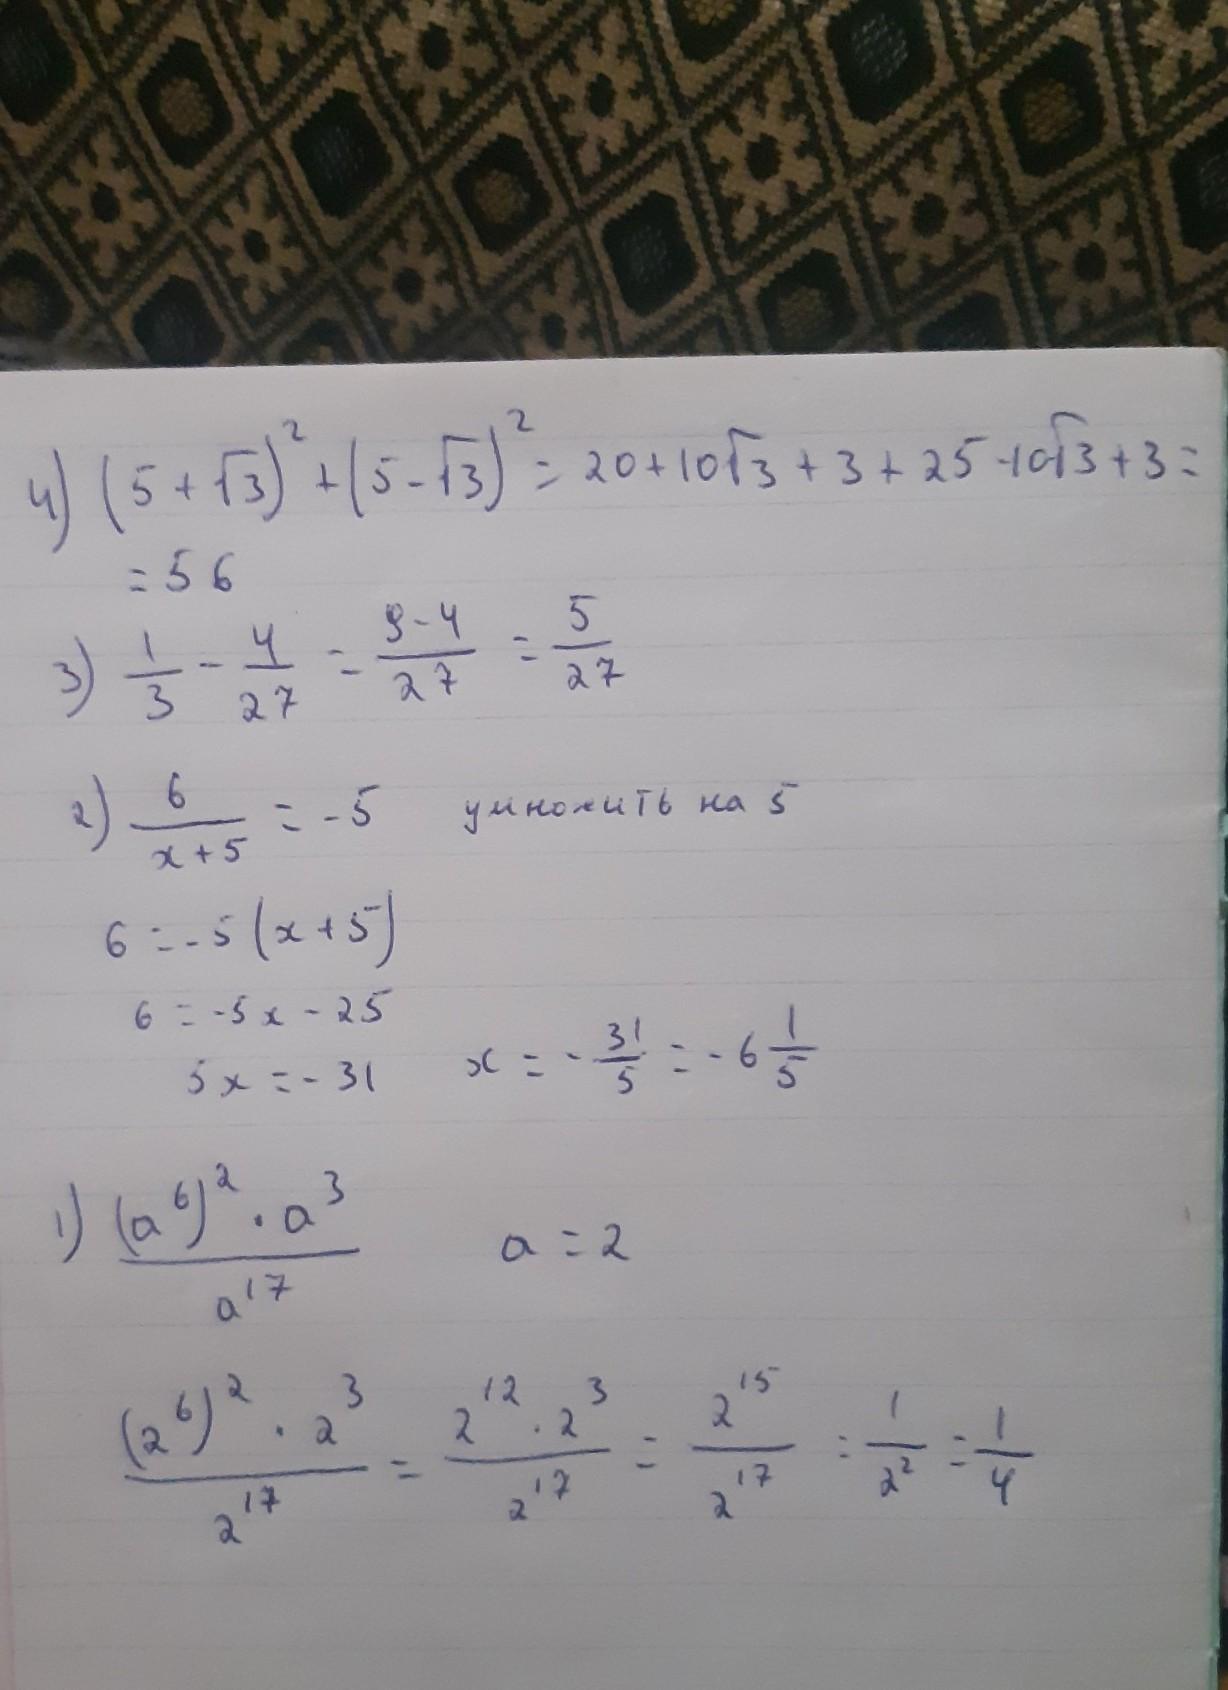 4) (5+√3)² + (5-√3)² = 20+10√3 + 3 + 25 -10√3 + 3 =
= 56
3) 1/3 - 4/27 = 9-4/27 = 5/27
2) 6/x+5 = -5 умножить на 5
6 = -5(x+5)
6 = -5x - 25
5x = -31 x = -31/5 = -6 1/5
1) (a⁶)² · a³/a¹⁷ a = 2
(2⁶)² · 2³/2¹⁷ = 2¹² · 2³/2¹⁷ = 2¹⁵/2¹⁷ = 1/2² = 1/4